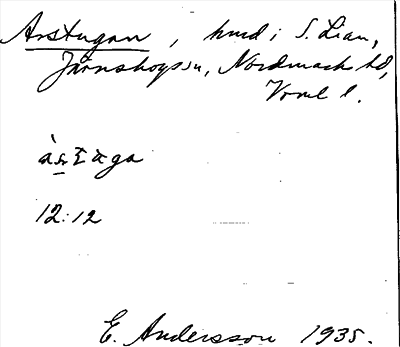 Arstugan, hmd i S. Lian,
Järnskogs sn, Nordmarks hd,
Vrml l.
12:12
E. Andersson 1935.